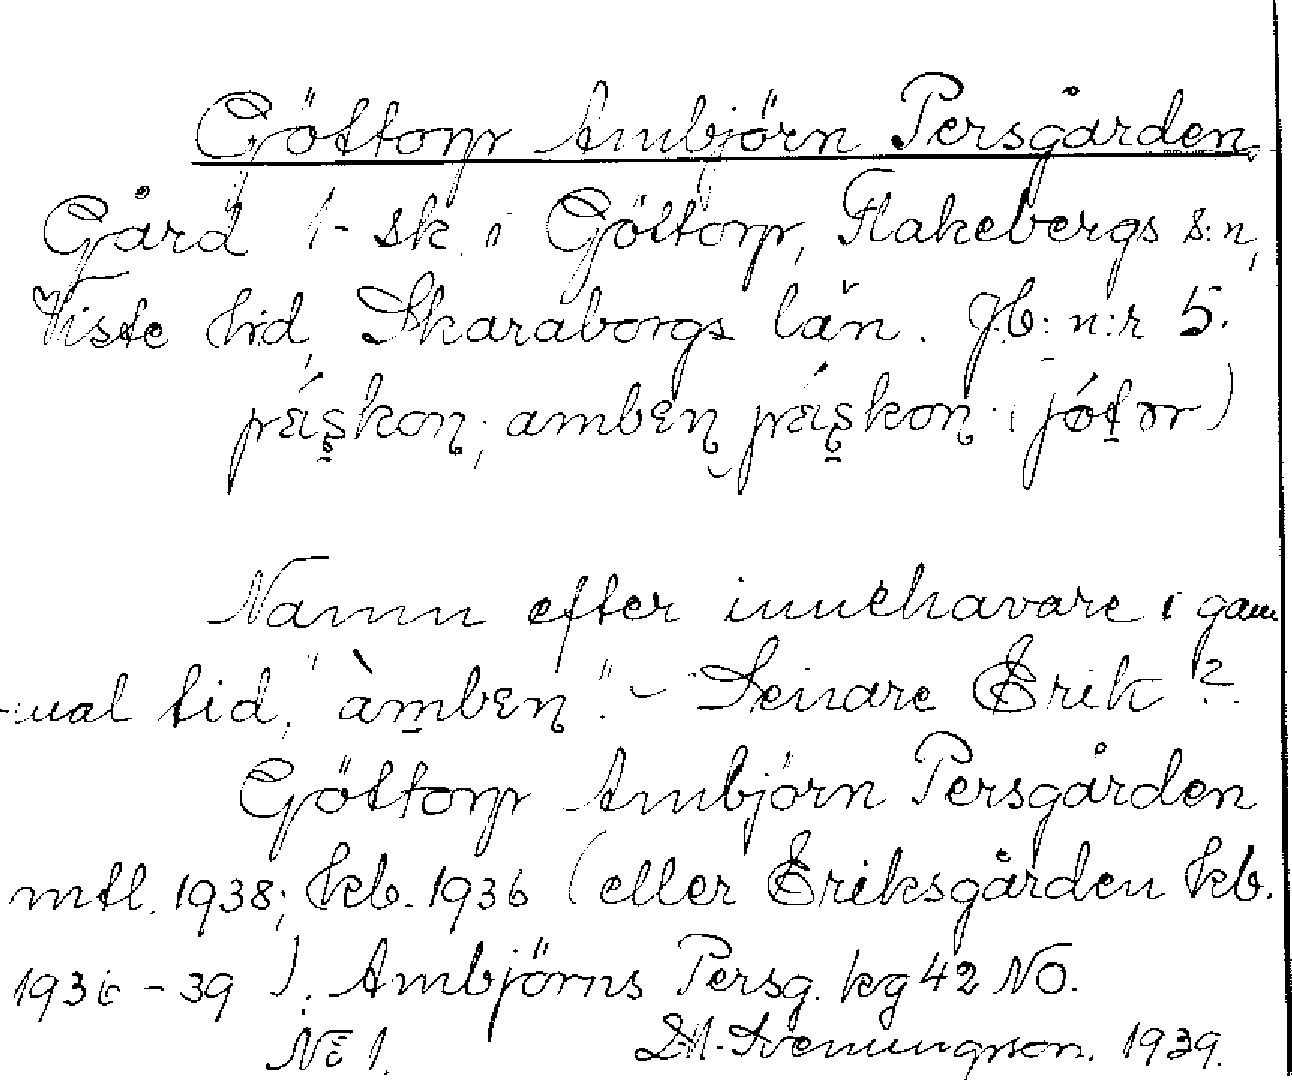 Göttorp Ambjörn Persgården.
Gård 1-sk i Göttorp, Flakebergs s:n,
Viste hd, Skaraborgs län. J.b: n:r 5.
Namn efter innehavare i gam
-mal tid, "àmbεn". - Senare Erik?
Göttorp Ambjörn Persgården
mtl. 1938; kb. 1936 (eller Eriksgården kb.
1936-39). Ambjörns Persg. kg 42 NO.
1939.